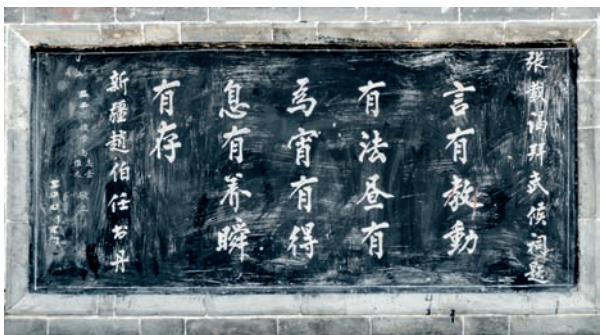 張載謁拜武候祠題
言有教動
有法昼有
為宵有得
息有养瞬
有存
新疆趙伯任书丹